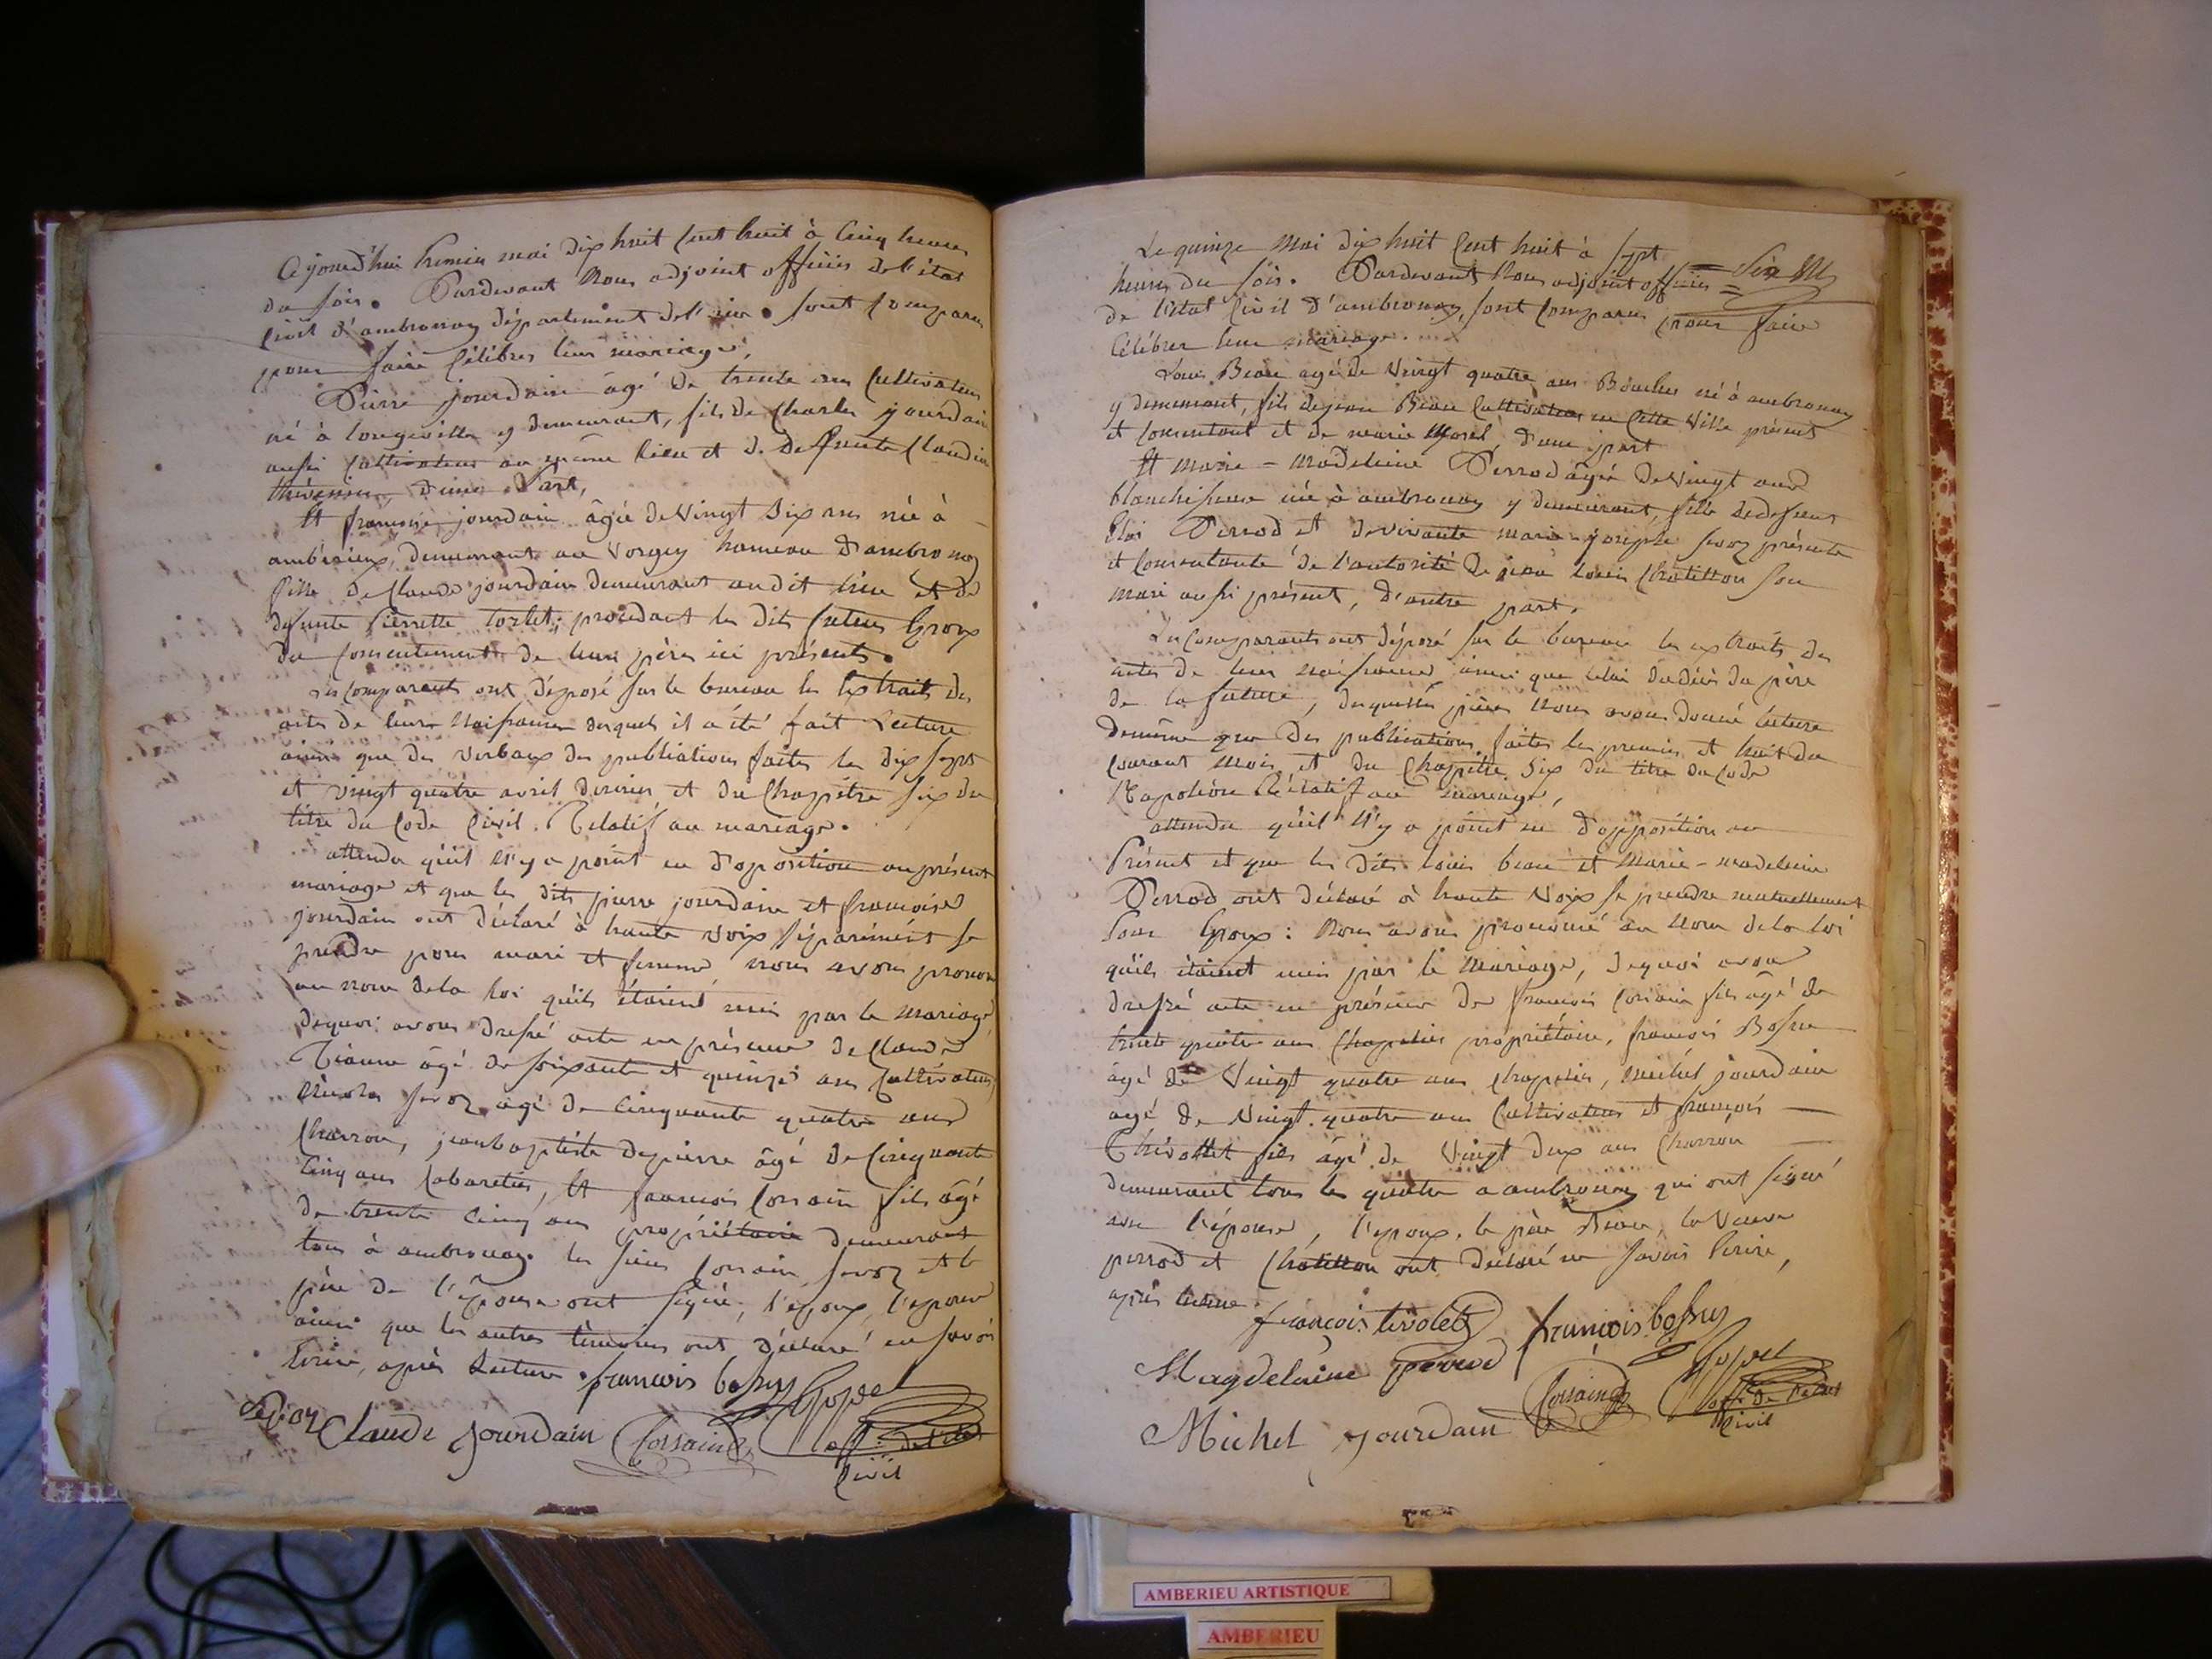 Cejourd'hui Premier mai dix huit cent huit à Cinq heures
du soir. Pardevant Nous adjoint officier de l'état
Civil d'ambronay département de l'ain. sont Comparus
pour faire Célébrer leur mariage,
Pierre jourdain âgé de trente ans Cultivateur
né à longeville y demeurant, fils de Charles jourdain
aussi Cultivateur au même lieu et de defunte Claudine
thévenin d'une part,
Et françoise jourdain âgée de Vingt Six ans née à
ambérieux, demeurant au Vorgey hameau d'ambronay
fille de Claude jourdain demeurant audit lieu et de
defunte Pierrette procedant les dits futurs Epoux
du Consentement de leurs pères ici présents.
Les comparants ont déposé sur le bureau les Extraits des
actes de leurs Naissances desquels il a été fait Lecture
ainsi que des verbaux des publications faites les dix sept
et vingt quatre avril dernier et du Chapitre six du
titre du Code Civil Relatif au mariage.
attendu qu'il N'y a point eu d'oposition au présent
mariage et que les dits pierre jourdain et françoise
jourdain ont déclaré à haute voix séparément se
prendre pour mari et femme, nous avons prononcé
au nom de la loi qu'ils étaient unis par le mariage,
dequoi avons dressé acte en présence de Claude
âgé de soixante et quinze ans Cultivateur,
Nicolas savoy âgé de Cinquante quatre ans
Charron, jeanbaptiste depierre âgé de Cinquante
Cinq ans Cabaretier, Et francois Corsain fils âgé
de trente cinq ans propriétaire demeurant
tous à ambronay. les sieurs Corsain, savoy et le
père de l'épouse ont signé, l'époux, l'épouse
ainsi que les autres témoins ont déclaré ne savoir
Ecrire, après Lecture. francois bossuy
Claude jourdain Corsain off. de l'état
Civil
Le quinze Mai dix huit Cent huit à sept
heures du soir. Pardevant Nous adjoint officier
de l'état Civil d'ambronay, sont Comparus pour faire
Célébrer leur mariage.
Louis Beau agé de Vingt quatre ans Boucher né à ambronay
y demeurant, fils de jean Beau Cultivateur en Cette Ville présent
et Consentant et de marie Morel d'une part
Et Marie-Madeleine Perrod âgée de Vingt ans
blanchisseuse née à ambronay y demeurant, fille de defunt
Eloi Perrod et de vivante marie-josephe savoy présente
et Consentante de l'autorité de jean louis Châtillon son
mari aussi présent, d'autre part.
Les Comparants ont déposé sur le bureau les extraits des
actes de leurs naissances, ainsi que Celui du décès du père
de la future, desquelles pièces Nous avons donné lecture
demême que des publications faites les premier et huit du
Courant Mois, et du Chapitre Six du titre du Code
Napoléon Rélatif au mariage,
attendu qu'il N'y a point eu d'opposition au
Présent et que les Dits louis beau et Marie-madeleine
Perrod ont déclaré à haute Voix se prendre mutuellement
Pour Epoux: Nous avons prononcé au Nom de la loi
qu'ils étaient unis par le Mariage, dequoi avons
dressé acte en présence de françois Corsain fils âgé de
trente quatre ans Chapelier propriétaire, francois Bossue
âgé de Vingt quatre ans Chapelier, Michel jourdain
agé de Vingt quatre ans Cultivateur et françois
Thivollet fils âgé de Vingt deux ans Charron
demeurant tous les quatre a ambronay qui ont signé
avec l'épouse, l'époux, le père Beau, la Veuve
perrod et Châtillon ont déclaré ne savoir Ecrire,
après lecture.
françois tivolet francois bossuy
Magdelaine perrod
Corsain off. de l'état
Civil
Michel jourdain
AMBERIEU ARTISTIQUE
AMBERIEU